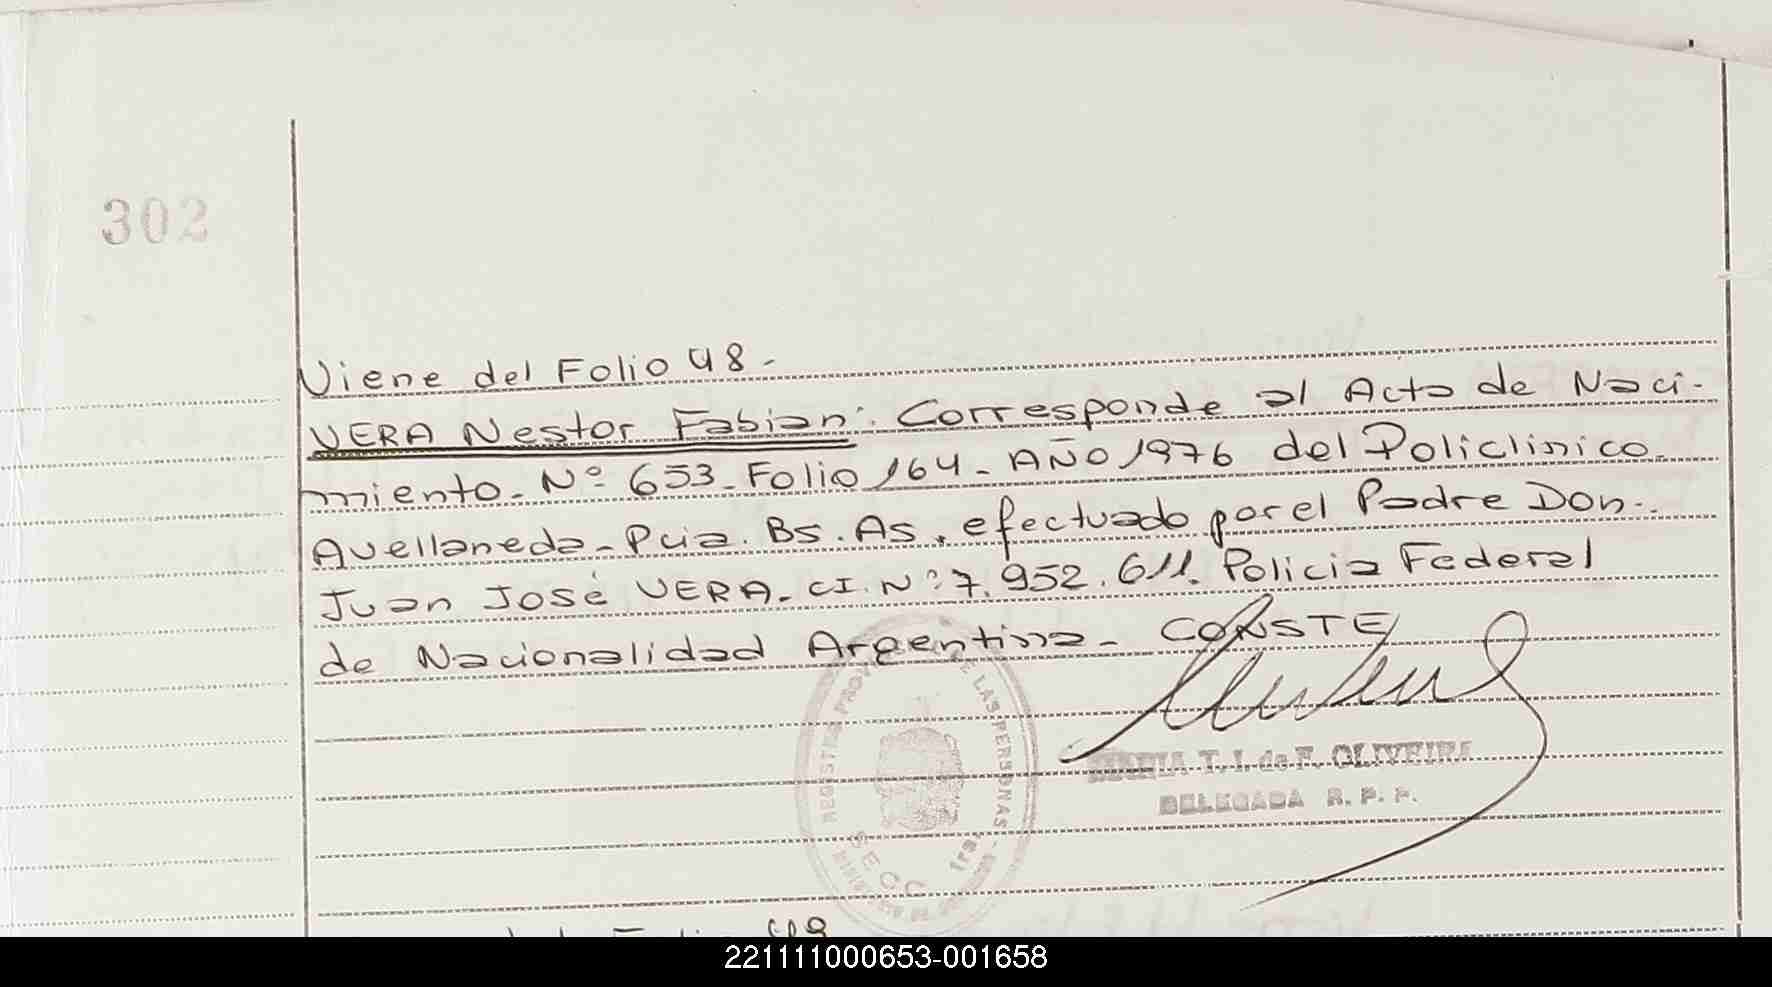 302
Viene del Folio 48.-
VERA Nestor Fabian: Corresponde al Acta de Naci-
miento. Nº 653. Folio 164. AÑO 1976 del Policlinico.
Avellaneda. Pcia. Bs. As. efectuado por el Padre Don..
Juan José VERA. CI. Nº 7.952.611. Policia Federal
de Nacionalidad Argentina. CONSTE
REGISTRO PROV DE LAS PERSONAS
SECC 1ra.
MARIA T. I. de F. OLIVEIRA
DELEGADA R. P. P.
48
221111000653-001658